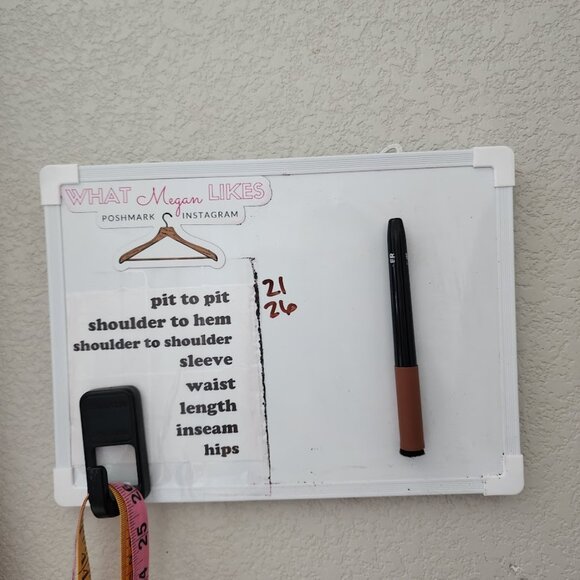 WHAT Megan LIKES
POSHMARK INSTAGRAM
pit to pit 21
shoulder to hem 26
shoulder to shoulder
sleeve
waist
length
inseam
hips
ER
25